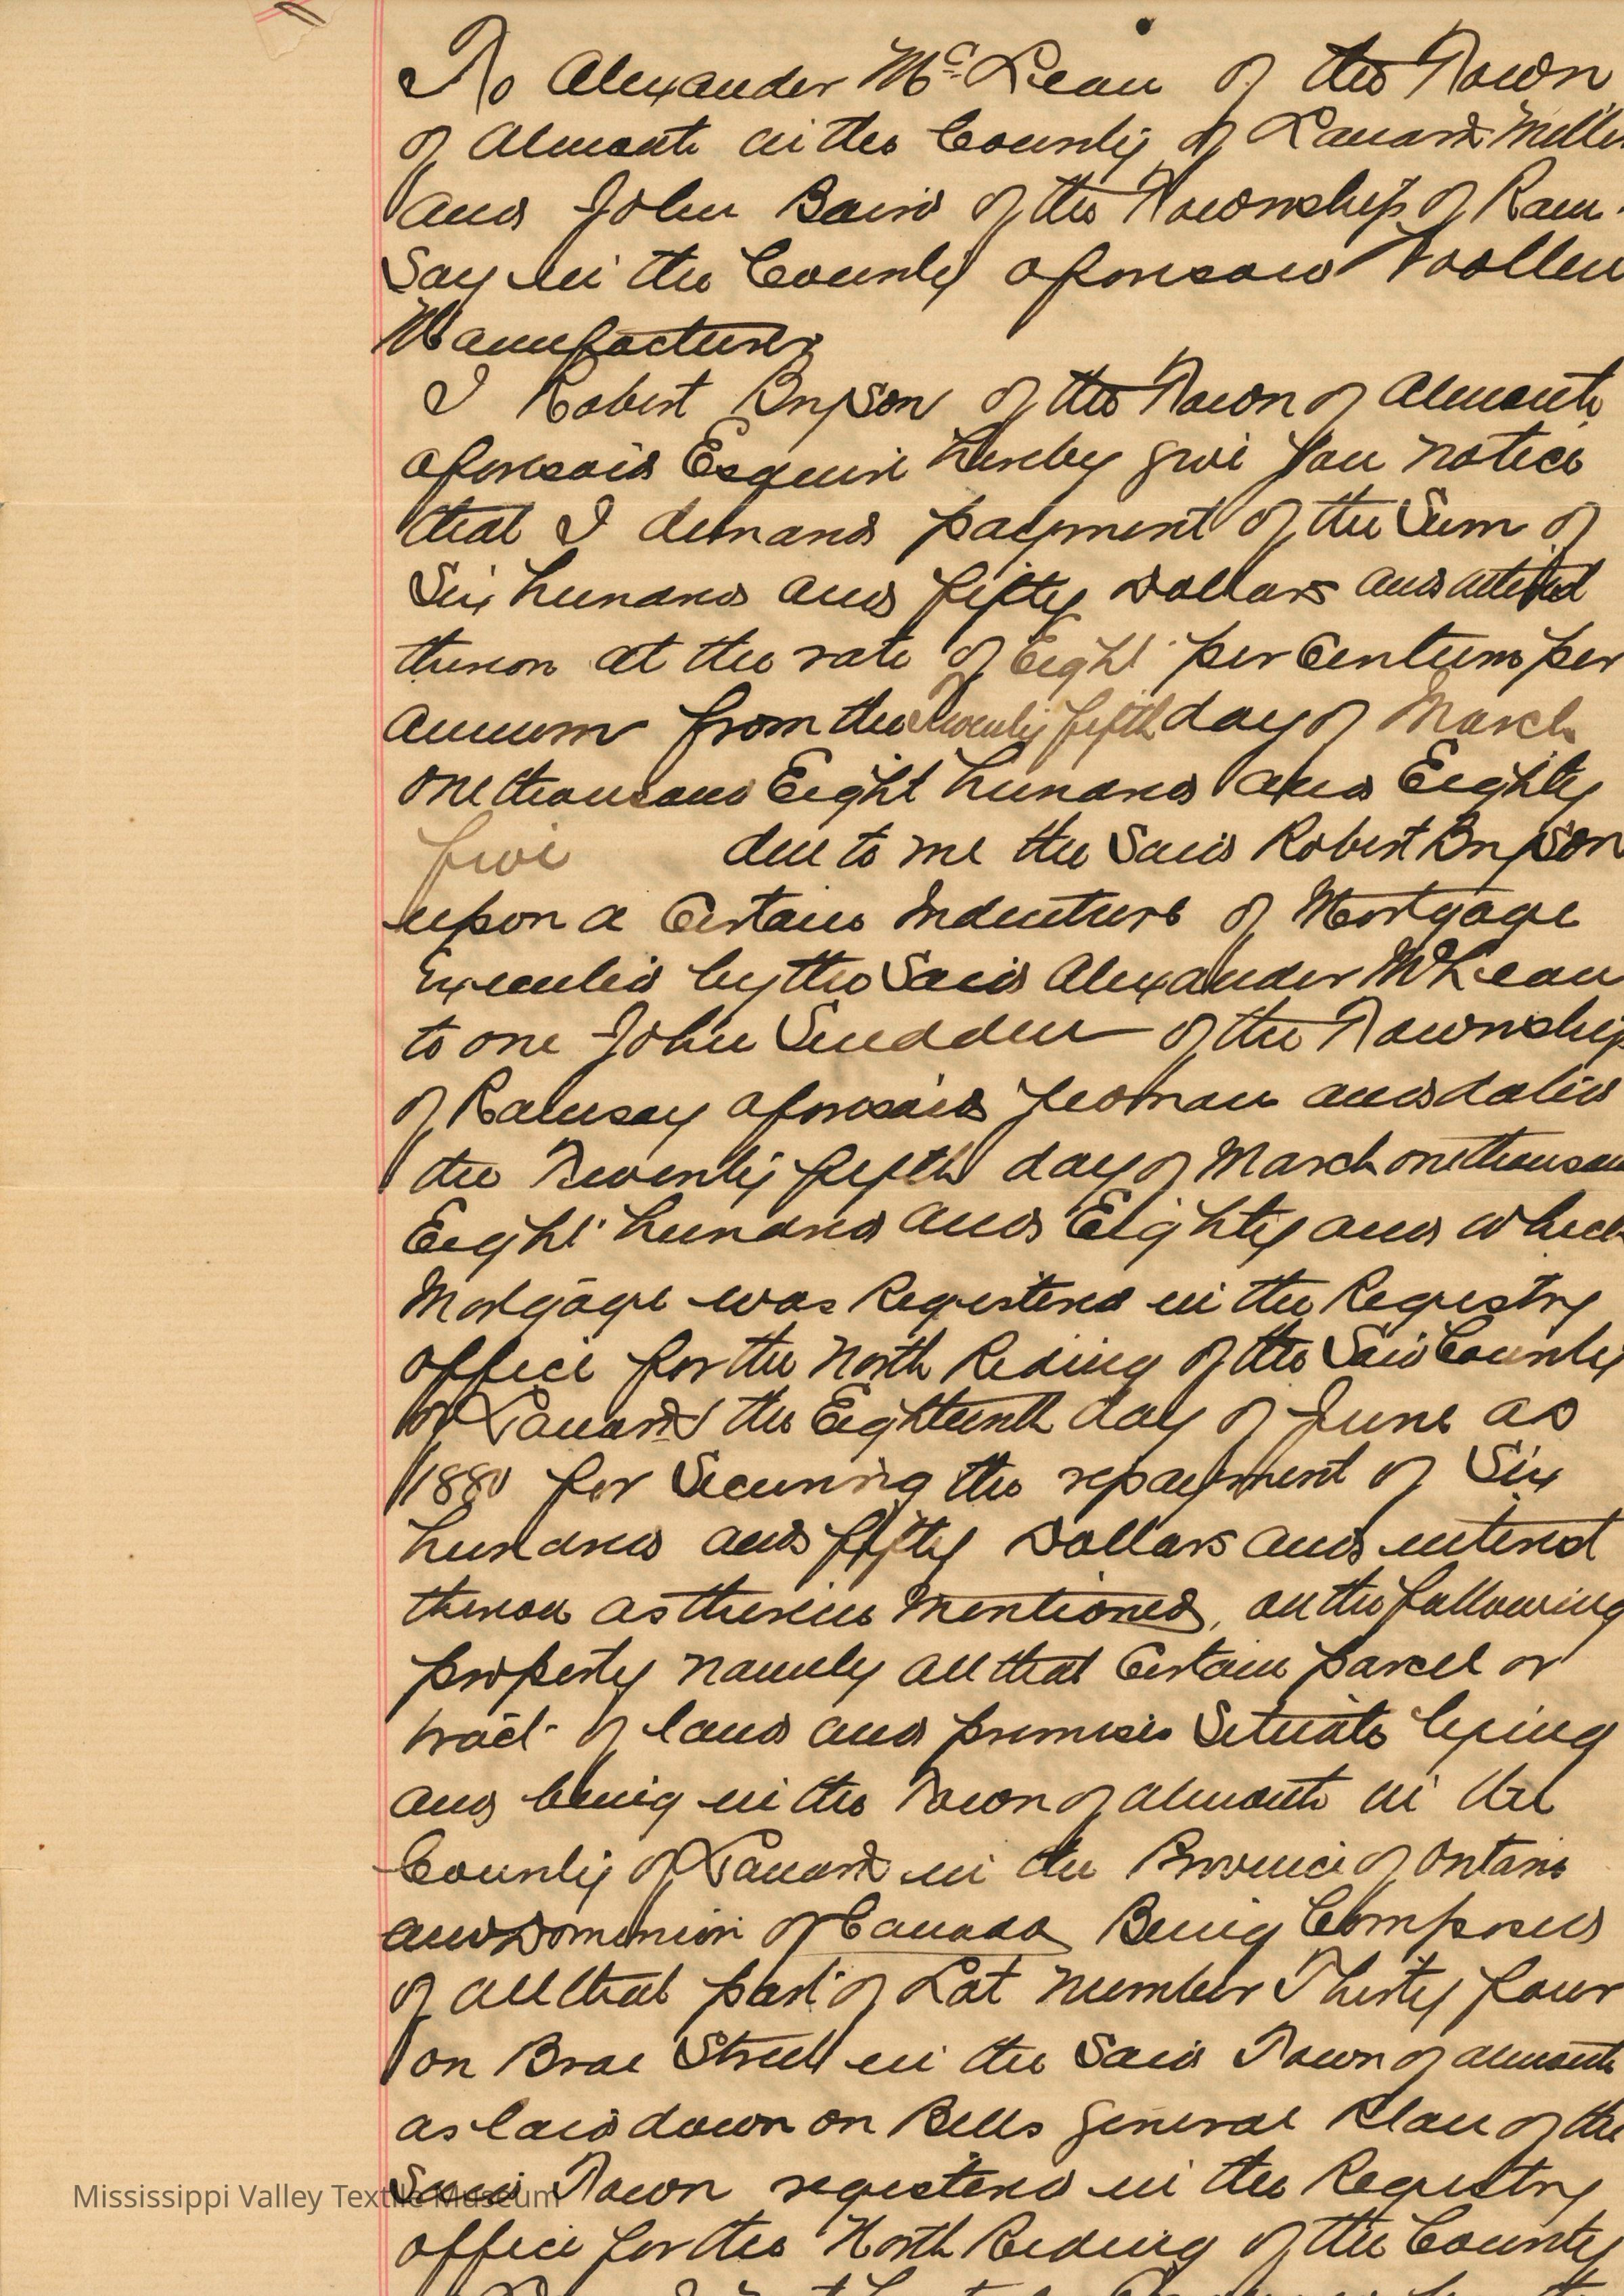 To Alexander McLean of the Town
of Almonte in the County of Lanark Miller
and John Baird of the Township of Ram-
Say in the County aforesaid Woollen
Manufacturer
I Robert Bryson of the Town of Almonte
aforesaid Esquire hereby give you notice
that I demand payment of the Sum of
Six hundred and fifty Dollars and interest
thereon at the rate of Eight per Centum per
annum from the twenty fifth day of March
one thousand Eight hundred and Eighty
five due to me the Said Robert Bryson
upon a Certain Indenture of Mortgage
Executed by the Said Alexander McLean
to one John Snedden of the Township
of Ramsay aforesaid yeoman and dated
the Twenty fifth day of March one thousand
Eight hundred and Eighty and which
Mortgage was Registered in the Registry
office for the North Riding of the Said County
of Lanark the Eighteenth day of June AD
1880 for Securing the repayment of Six
hundred and fifty Dollars and interest
thereon as therein Mentioned, on the following
property namely all that Certain parcel or
tract of land and premises Situate lying
and being in the Town of Almonte in the
County of Lanark in the Province of Ontario
and Dominion of Canada Being Composed
of all that part of Lot number Thirty four
on Brae Street in the Said Town of Almonte
as laid down on Bells General Plan of the
Said Town registered in the Registry
office for the North Riding of the County
Mississippi Valley Textile Museum